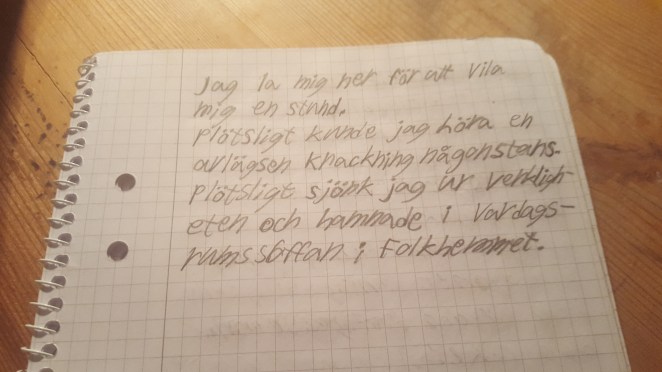 Jag la mig ner för att vila
mig en stund.
Plötsligt kunde jag höra en
avlägsen knackning någonstans.
Plötsligt sjönk jag ur verkligh-
eten och hamnade i Vardags-
rumssoffan i Folkhemmet.